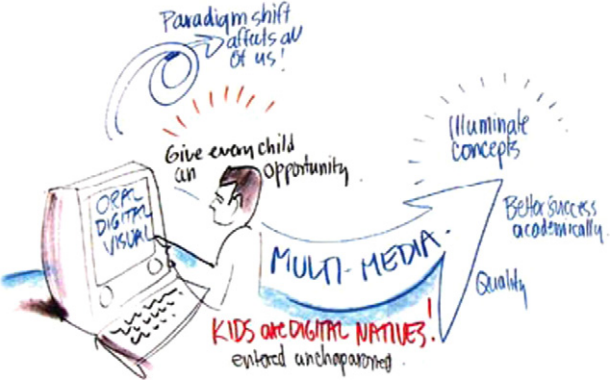 Paradigm shift
affects all
of us!
Give every child
an opportunity.
ORAL
DIGITAL
VISUAL
MULTI-MEDIA.
Illuminate
concepts
Better success
academically.
Quality
KIDS are DIGITAL NATIVES!
entered